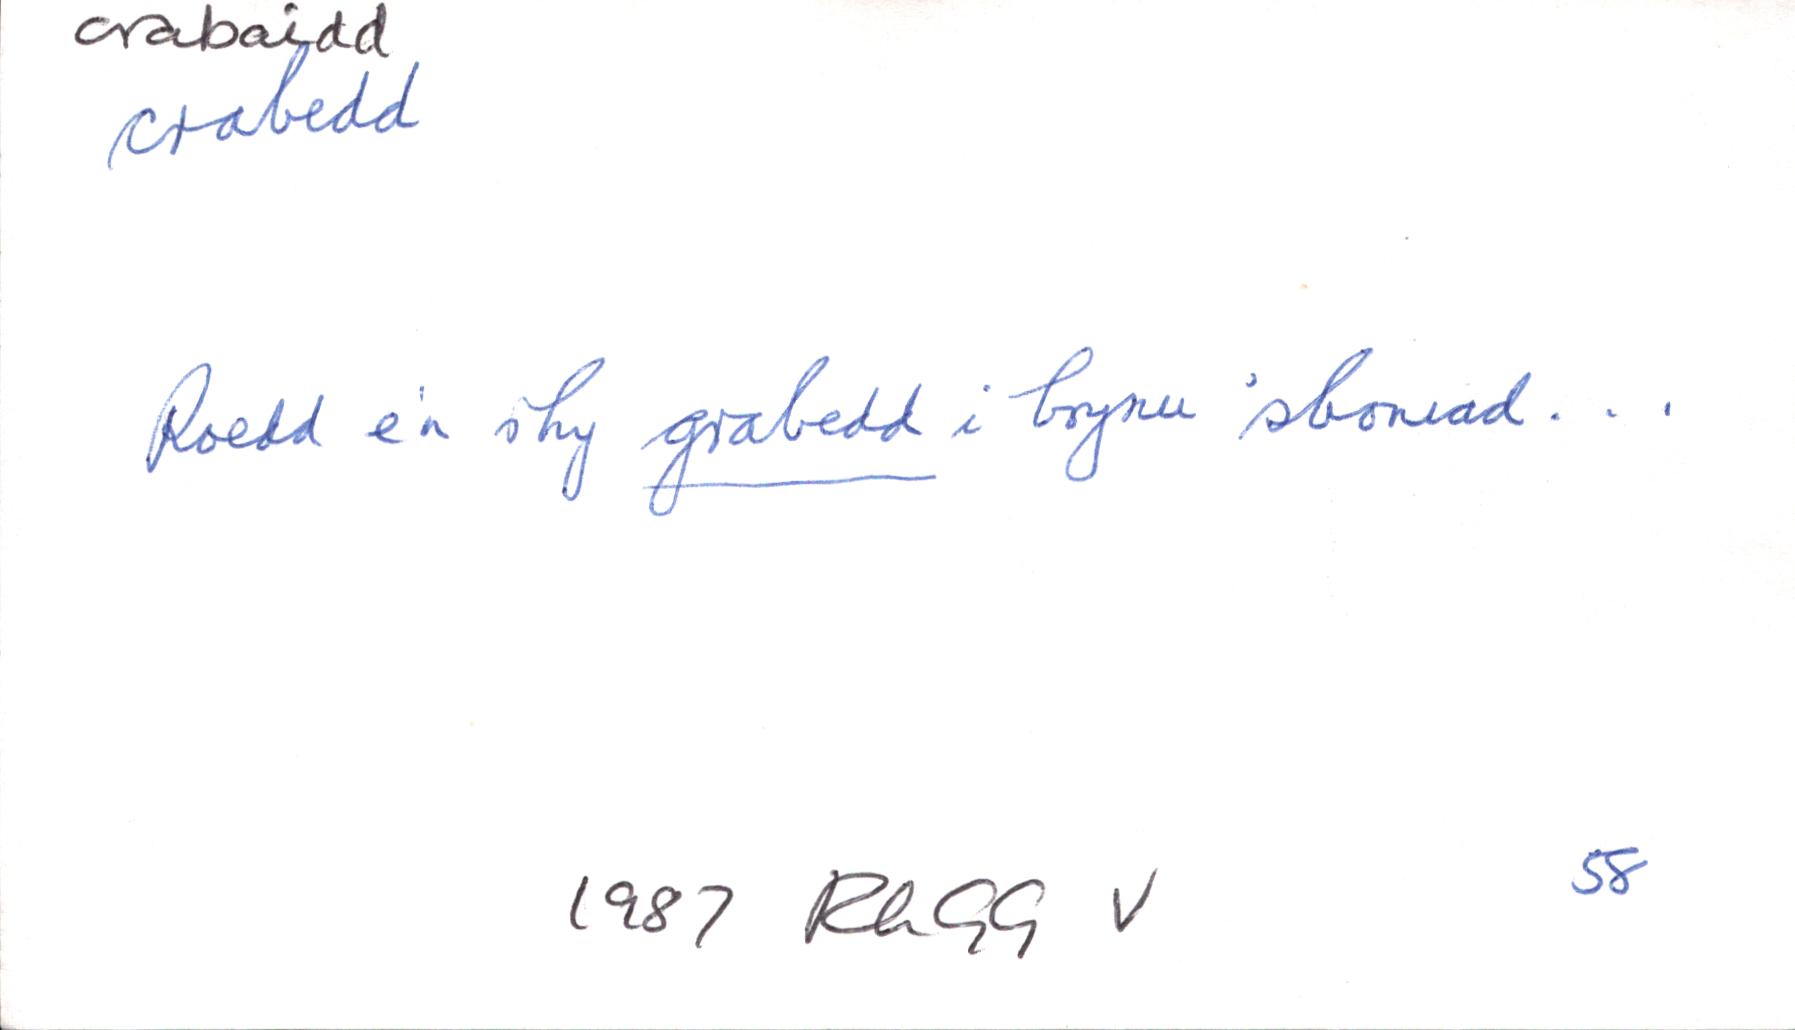 crabaidd
crabedd
Roedd e'n rhy grabedd i brynu 'sboniad...
58
1987 RhGG V